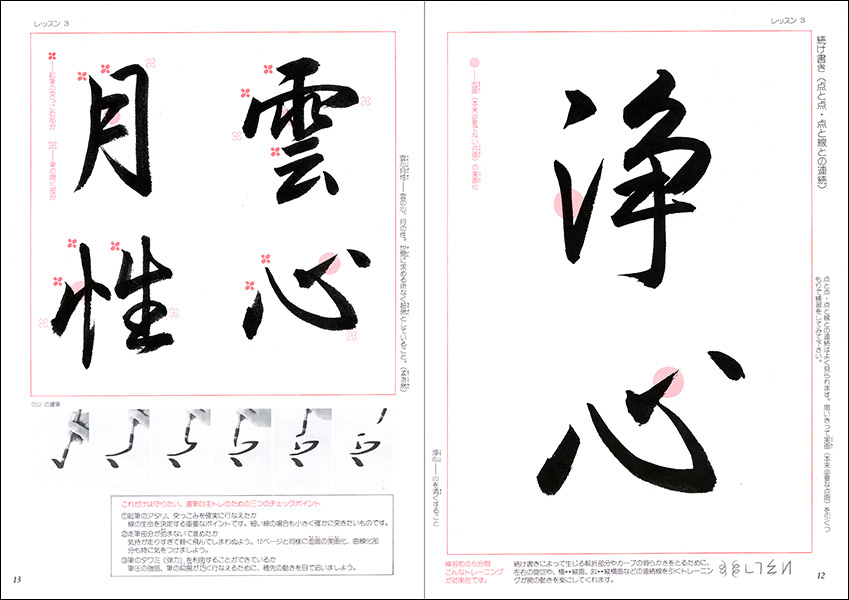 レッスン 3
続け書き（点と点・点と線との連続）
点と点・点と線との連続はよく見られます。思いきって実画（本来必要な点画）を引くつ
もりで練習をしてみて下さい。
浄心
浄心――心を清くすること
練習前の5分間
こんなトレーニング
が効果的です。
続け書きによって生じる転折部分やカーブの滑らかさをとるために、
左右の旋回や、横↔縦画、斜↔縦横画などの連続線を引くトレーニン
グが腕の動きを楽にしてくれます。
12
レッスン 3
雲心
月性
雲心月性――雲の心、月の性。世間に求める所なく超然としていること。（孟浩然）
――起筆の突っこむ部分
――筆の突く部分
〈心〉の運筆
これだけは守りたい、運筆自主トレのための三つのチェックポイント
①起筆のアタリ、突っこみを確実に行なえたか
線の生命を決定する重要なポイントです。細い線の場合も小さく確かに突きたいものです。
②走筆部分が弛まないで進めたか
気持が走りすぎて軽く飛んでしまわぬよう。12ページと同様に虚画の実画化、曲線化部
分も特に気をつけましょう。
③筆のタワミ（弾力）を利用することができているか
筆圧の強弱、筆の抑揚が巧く行なえるために、穂先の動きを目で追いましょう。
13